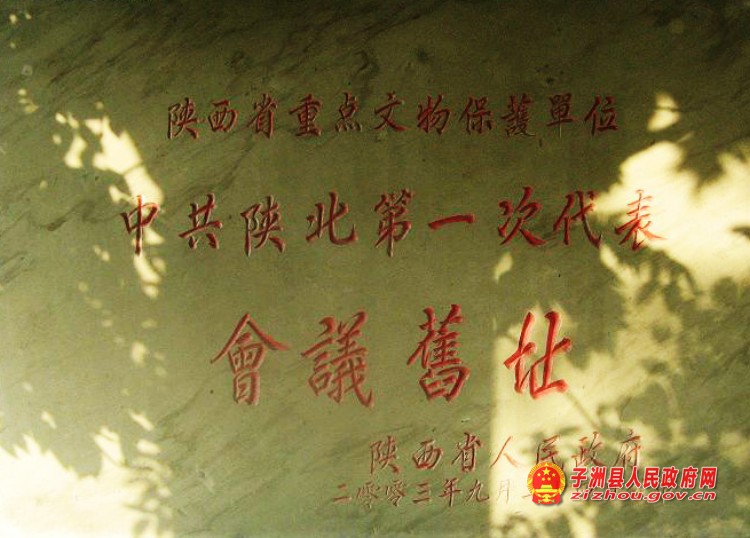 陕西省重点文物保護單位
中共陕北第一次代表
會議舊址
陕西省人民政府
二零零三年九月
子洲县人民政府网
zizhou.gov.cn